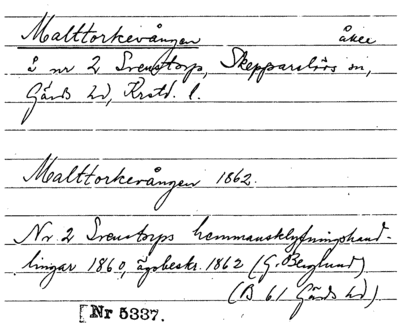 Malttorkevången åker
å nr 2 Svenstorp, Skepparslövs sn,
Gärds hd, Krstd. l.
Malttorkevången 1862.
Nr. 2 Svenstorps hemmansklyfningshand-
lingar 1860, ägobeskr. 1862 (G. Berglund)
(B 61 Gärds hd)
[Nr 5337.